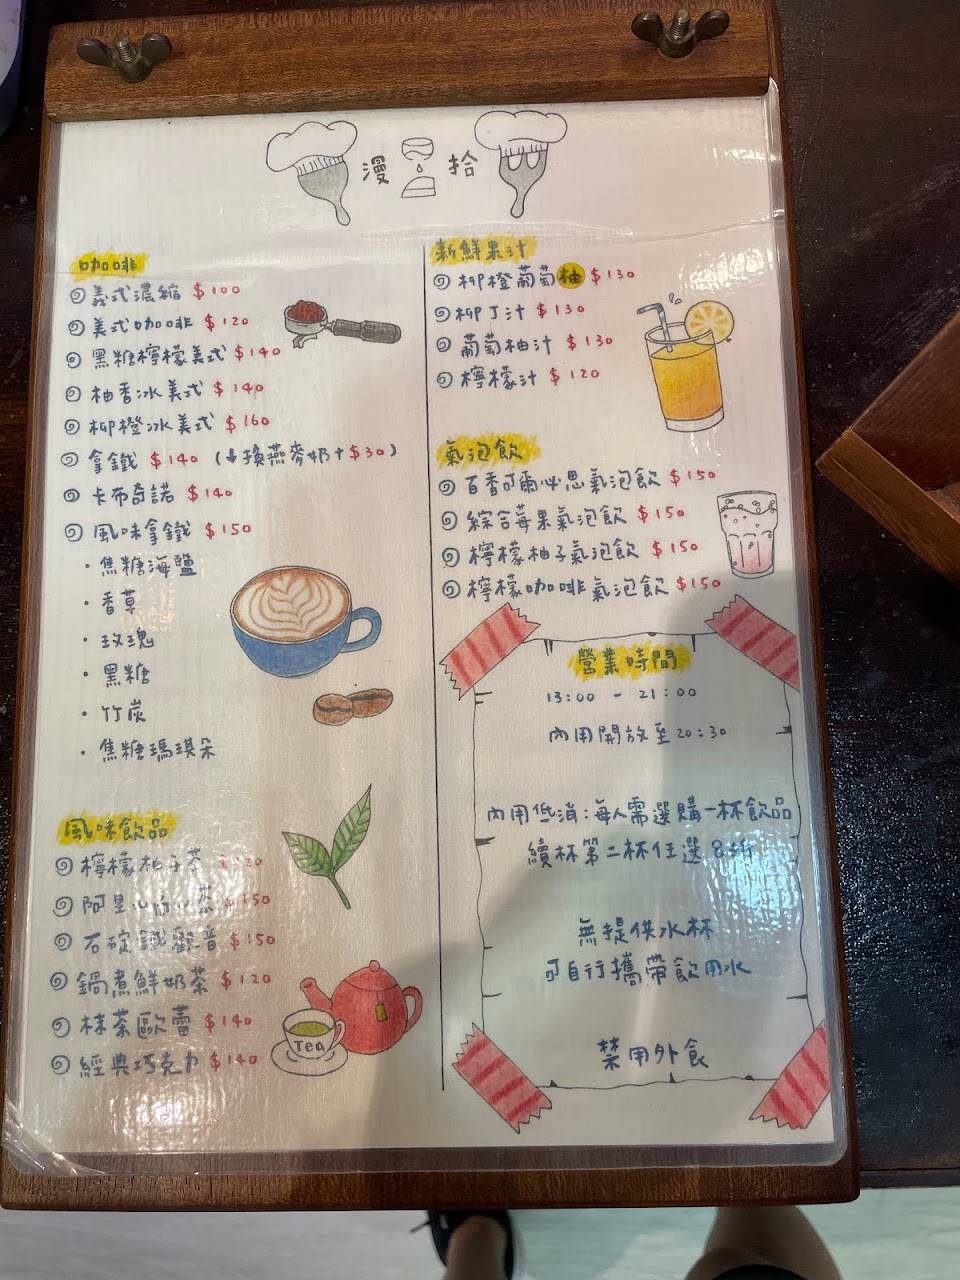 漫 拾
咖啡
義式濃縮 $100
美式咖啡 $120
黑糖檸檬美式 $140
柚香冰美式 $140
柳橙冰美式 $160
拿鐵 $140 (↓換燕麥奶+$30)
卡布奇諾 $140
風味拿鐵 $150
・焦糖海鹽
・香草
・玫瑰
・黑糖
・竹炭
・焦糖瑪琪朵
風味飲品
檸檬柚子茶 $120
阿里山 茶 $150
石碇鐵觀音 $150
鍋煮鮮奶茶 $120
抹茶歐蕾 $140
經典巧克力 $140
Tea
新鮮果汁
柳橙葡萄柚 $130
柳丁汁 $130
葡萄柚汁 $130
檸檬汁 $120
氣泡飲
百香可爾必思氣泡飲 $150
綜合莓果氣泡飲 $150
檸檬柚子氣泡飲 $150
檸檬咖啡氣泡飲 $150
營業時間
13:00 - 21:00
內用開放至20:30
內用低消:每人需選購一杯飲品
續杯第二杯任選8折
無提供水杯
可自行攜帶飲用水
禁用外食